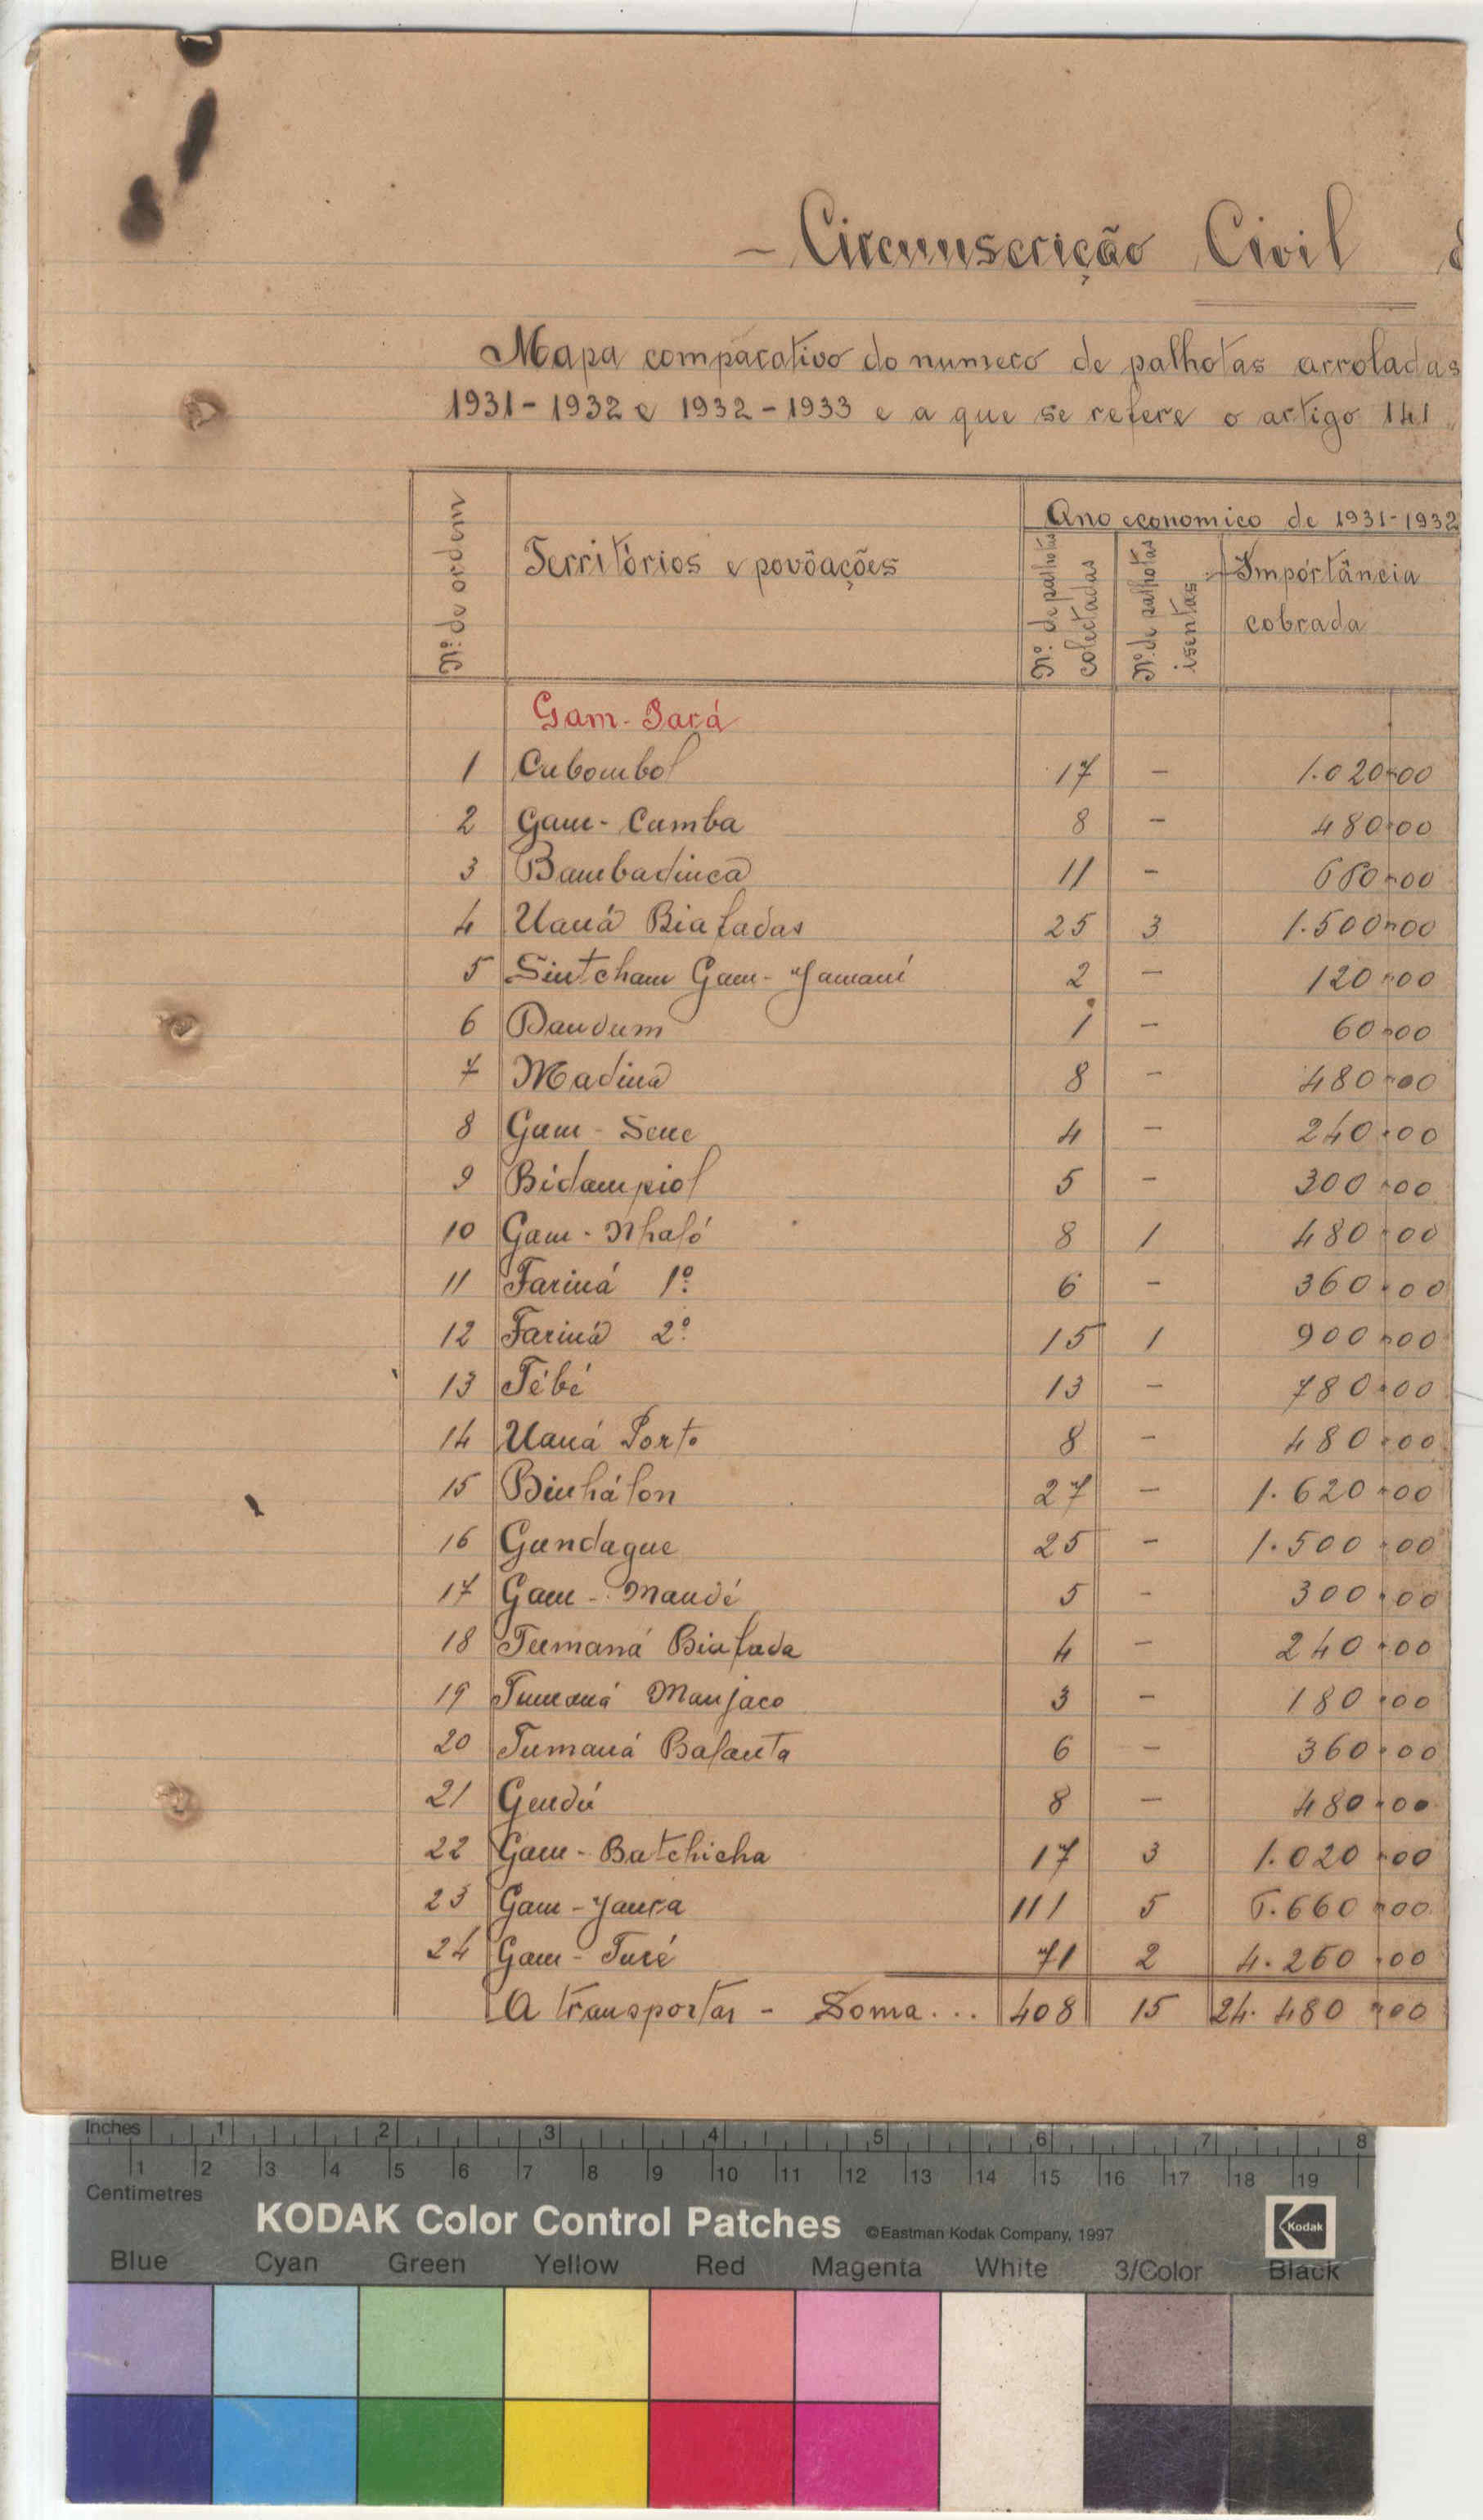 - Circunscrição Civil d
Mapa comparativo do numero de palhotas arroladas
1931-1932 e 1932-1933 e a que se refere o artigo 141
Nº. de ordem
Territòrios e povôações
Ano economico de 1931-1932
Nº. de palhotas colectadas
Nº. de palhotas isentas
Importância
cobrada
Gam-Sará
1 Cubombol 17 - 1.020$00
2 Gam-Cumba 8 - 480$00
3 Bambadinca 11 - 660$00
4 Uaná Biafadas 25 3 1.500$00
5 Sintcham Gam-Yamani 2 - 120$00
6 Dandum 1 - 60$00
7 Madina 8 - 480$00
8 Gam-Sene 4 - 240$00
9 Bidampiol 5 - 300$00
10 Gam-Nhaló 8 1 480$00
11 Fariná 1º. 6 - 360$00
12 Fariná 2º. 15 1 900$00
13 Tébé 13 - 780$00
14 Uaná Porto 8 - 480$00
15 Binhálon 27 - 1.620$00
16 Gundague 25 - 1.500$00
17 Gam-Mandé 5 - 300$00
18 Tumaná Biafada 4 - 240$00
19 Tumaná Manjaco 3 - 180$00
20 Tumaná Balanta 6 - 360$00
21 Gendú 8 - 480$00
22 Gam-Batchicha 17 3 1.020$00
23 Gam-Yanra 111 5 6.660$00
24 Gam-Turé 71 2 4.260$00
A transportar - Soma... 408 15 24.480$00
Inches 1 2 3 4 5 6 7 8
1 2 3 4 5 6 7 8 9 10 11 12 13 14 15 16 17 18 19
Centimetres
KODAK Color Control Patches ©Eastman Kodak Company, 1997 Kodak
Blue Cyan Green Yellow Red Magenta White 3/Color Black